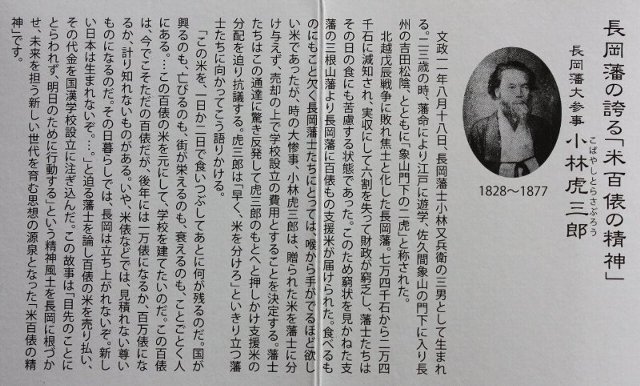 長岡藩の誇る「米百俵の精神」
長岡藩大参事 小林虎三郎
こばやしとらさぶろう
1828～1877
文政一一年八月十八日、長岡藩士小林又兵衛の三男として生まれ
る。二三歳の時、藩命により江戸に遊学、佐久間象山の門下に入り長
州の吉田松陰、とともに「象山門下の二虎」と称された。
北越戊辰戦争に敗れ焦土と化した長岡藩。七万四千石から二万四
千石に減知され、実収にして六割を失って財政が窮乏し、藩士たちは
その日の食にも苦慮する状態であった。このため窮状を見かねた支
藩の三根山藩より長岡藩に百俵もの支援米が届けられた。食べるも
のにもこと欠く長岡藩士たちにとっては、喉から手がでるほど欲し
い米であったが、時の大惨事、小林虎三郎は、贈られた米を藩士に分
け与えず、売却の上で学校設立の費用とすることを決定する。藩士
たちはこの通達に驚き反発して虎三郎のもとへと押しかけ支援米の
分配を迫り抗議する。虎三郎は「早く、米を分けろ」といきり立つ藩
士たちに向かってこう語りかける。
「この米を、一日か二日で食いつぶしてあとに何が残るのだ。国が
興るのも、亡びるのも、街が栄えるのも、衰えるのも、ことごとく人
にある。…この百俵の米を元にして、学校を建てたいのだ。この百俵
は、今でこそただの百俵だが、後年には一万俵になるか、百万俵にな
るか、計り知れないものがある。いや、米俵などでは、見積れない尊い
ものになるのだ。その日暮らしでは、長岡は立ち上がれないぞ。新し
い日本は生まれないぞ…。」と迫る藩士を諭し百俵の米を売り払い、
その代金を国漢学校設立に注ぎ込んだ。この故事は「目先のことに
とらわれず、明日のために行動する」という精神風土を長岡に根づか
せ、未来を担う新しい世代を育む思想の源泉となった「米百俵の精
神」です。